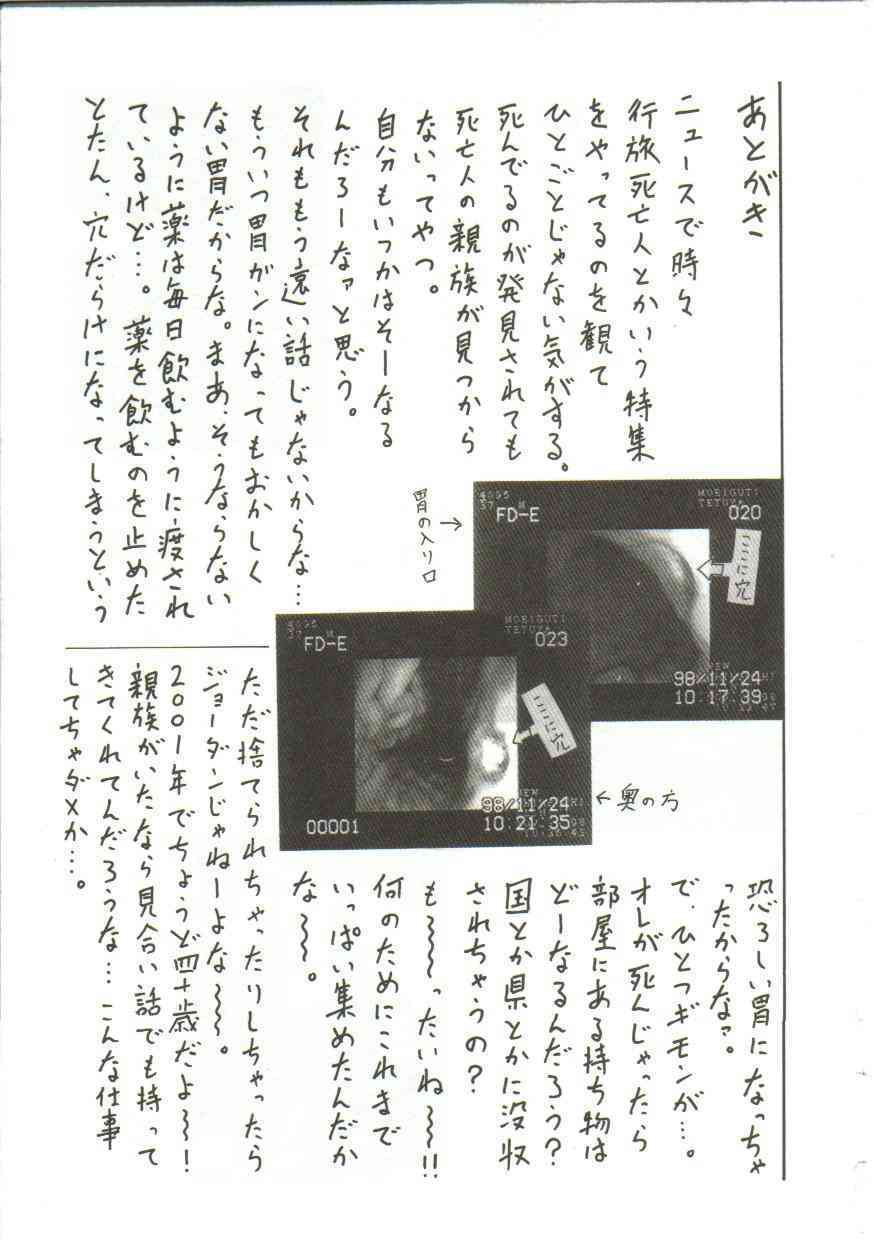 あとがき
ニュースで時々
行旅死亡人とかいう特集
をやってるのを観て
ひとごとじゃない気がする。
死んでるのが発見されても
死亡人の親族が見つから
ないってやつ。
自分もいつかはそーなる
んだろーなァと思う。
それももう遠い話じゃないからな…
もういつ胃がンになってもおかしく
ない胃だからな。まあ、そうならない
ように薬は毎日飲むように渡され
ているけど…。薬を飲むのを止めた
とたん、穴だらけになってしまうという
恐ろしい胃になっちゃ
ったからなァ。
で、ひとつギモンが…。
オレが死んじゃったら
部屋にある持ち物は
どーなるんだろう?
国とか県とかに没収
されちゃうの?
も〜〜ったいね〜〜!!
何のためにこれまで
いっぱい集めたんだか
な〜〜。
ただ捨てられちゃったりしちゃったら
ジョーダンじゃねーよな〜〜。
2001年でちょうど四十歳だよ〜〜!
親族がいたなら見合い話でも持って
きてくれてんだろうな…こんな仕事
してちゃダメか…。
胃の入り口 →
4095
37 M
FD-E
MORIGUTI
TETUYA
020
ここに穴
98/11/24
10:17:39
4095
37 M
FD-E
MORIGUTI
TETUYA
023
ここに穴
98/11/24
10:21:35
00001
← 奥の方